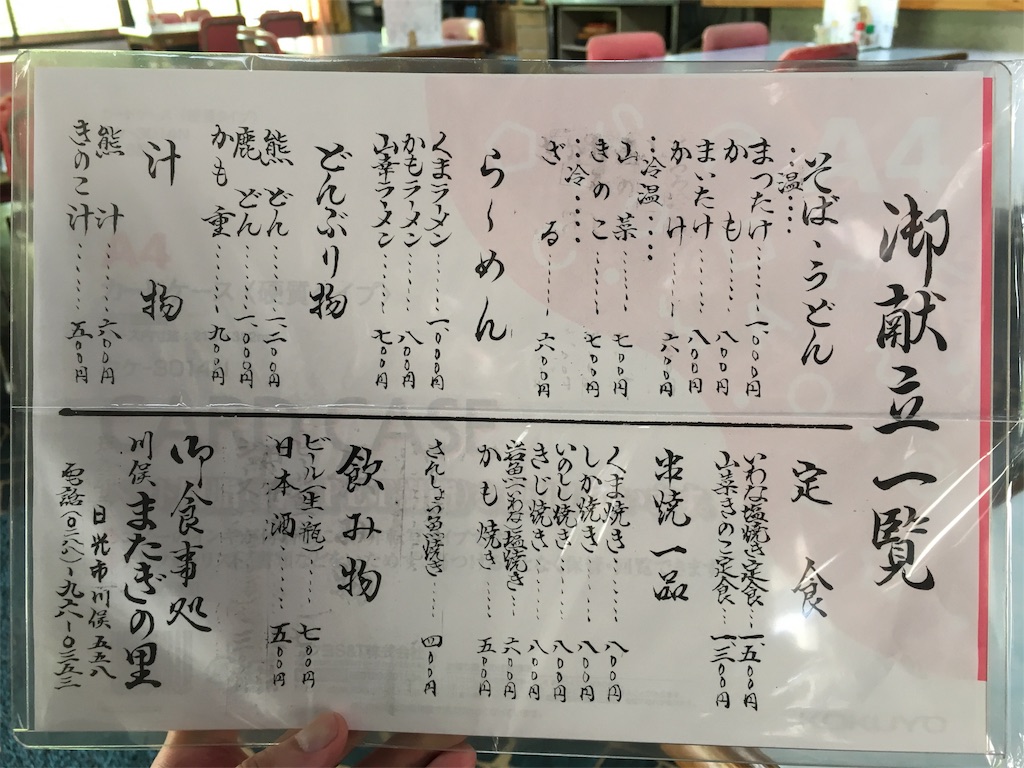 御献立一覧
そば、うどん
‥温‥‥
まつたけ‥‥‥一、〇〇〇円
かも‥‥‥八〇〇円
まいたけ‥‥‥八〇〇円
かけ‥‥‥六〇〇円
‥冷温‥‥
山菜‥‥‥七〇〇円
きのこ‥‥‥七〇〇円
‥冷‥‥
ざる‥‥‥六〇〇円
らーめん
くまラーメン‥‥‥一、〇〇〇円
かもラーメン‥‥‥八〇〇円
山幸ラーメン‥‥‥七〇〇円
どんぶり物
熊どん‥‥‥一、二〇〇円
鹿どん‥‥‥一、〇〇〇円
かも重‥‥‥九〇〇円
汁物
熊汁‥‥‥六〇〇円
きのこ汁‥‥‥五〇〇円
定食
いわな塩焼き定食‥‥一、五〇〇円
山菜きのこ定食‥‥一、三〇〇円
串焼一品
くま焼き‥‥‥八〇〇円
しか焼き‥‥‥八〇〇円
いのしし焼き‥‥‥八〇〇円
きじ焼き‥‥‥八〇〇円
岩魚(いわな)塩焼き‥‥‥六〇〇円
かも焼き‥‥‥五〇〇円
さんしょう魚焼き‥‥‥四〇〇円
飲み物
ビール(生、瓶)‥‥‥七〇〇円
日本酒‥‥‥五〇〇円
御食事処
川俣またぎの里
日光市川俣五五八
電話(〇二八八)-九六-〇三五三
A4
A4
CARD CASE